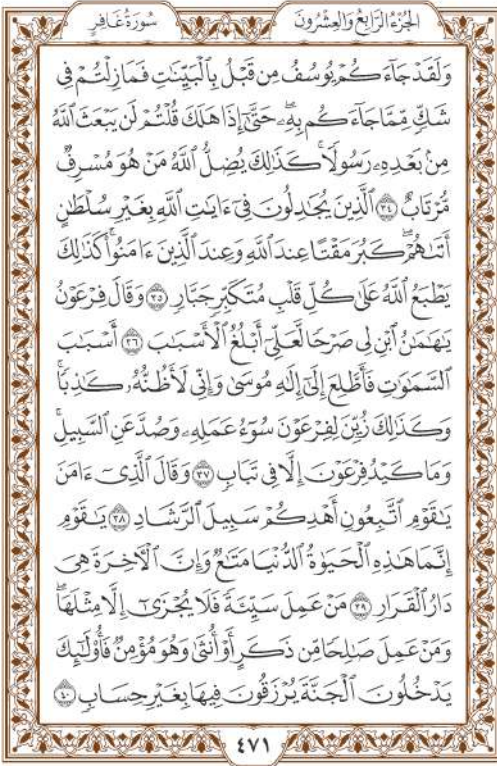 الجُزْءُ الرَّابِعُ وَالعِشْرُونَ سُورَةُ غَافِر
وَلَقَدْ جَآءَكُمْ يُوسُفُ مِن قَبْلُ بِٱلْبَيِّنَٰتِ فَمَا زِلْتُمْ فِى
شَكٍّ مِّمَّا جَآءَكُم بِهِۦ ۖ حَتَّىٰٓ إِذَا هَلَكَ قُلْتُمْ لَن يَبْعَثَ ٱللَّهُ
مِنۢ بَعْدِهِۦ رَسُولًا ۚ كَذَٰلِكَ يُضِلُّ ٱللَّهُ مَنْ هُوَ مُسْرِفٌ
مُّرْتَابٌ ٣٤ ٱلَّذِينَ يُجَٰدِلُونَ فِىٓ ءَايَٰتِ ٱللَّهِ بِغَيْرِ سُلْطَٰنٍ
أَتَىٰهُمْ ۖ كَبُرَ مَقْتًا عِندَ ٱللَّهِ وَعِندَ ٱلَّذِينَ ءَامَنُوا۟ ۚ كَذَٰلِكَ
يَطْبَعُ ٱللَّهُ عَلَىٰ كُلِّ قَلْبِ مُتَكَبِّرٍ جَبَّارٍ ٣٥ وَقَالَ فِرْعَوْنُ
يَٰهَٰمَٰنُ ٱبْنِ لِى صَرْحًا لَّعَلِّىٓ أَبْلُغُ ٱلْأَسْبَٰبَ ٣٦ أَسْبَٰبَ
ٱلسَّمَٰوَٰتِ فَأَطَّلِعَ إِلَىٰٓ إِلَٰهِ مُوسَىٰ وَإِنِّى لَأَظُنُّهُۥ كَٰذِبًا ۚ
وَكَذَٰلِكَ زُيِّنَ لِفِرْعَوْنَ سُوٓءُ عَمَلِهِۦ وَصُدَّ عَنِ ٱلسَّبِيلِ ۚ
وَمَا كَيْدُ فِرْعَوْنَ إِلَّا فِى تَبَابٍ ٣٧ وَقَالَ ٱلَّذِىٓ ءَامَنَ
يَٰقَوْمِ ٱتَّبِعُونِ أَهْدِكُمْ سَبِيلَ ٱلرَّشَادِ ٣٨ يَٰقَوْمِ
إِنَّمَا هَٰذِهِ ٱلْحَيَوٰةُ ٱلدُّنْيَا مَتَٰعٌ وَإِنَّ ٱلْءَاخِرَةَ هِىَ
دَارُ ٱلْقَرَارِ ٣٩ مَنْ عَمِلَ سَيِّئَةً فَلَا يُجْزَىٰٓ إِلَّا مِثْلَهَا ۖ
وَمَنْ عَمِلَ صَٰلِحًا مِّن ذَكَرٍ أَوْ أُنثَىٰ وَهُوَ مُؤْمِنٌ فَأُو۟لَٰٓئِكَ
يَدْخُلُونَ ٱلْجَنَّةَ يُرْزَقُونَ فِيهَا بِغَيْرِ حِسَابٍ ٤٠
٤٧١